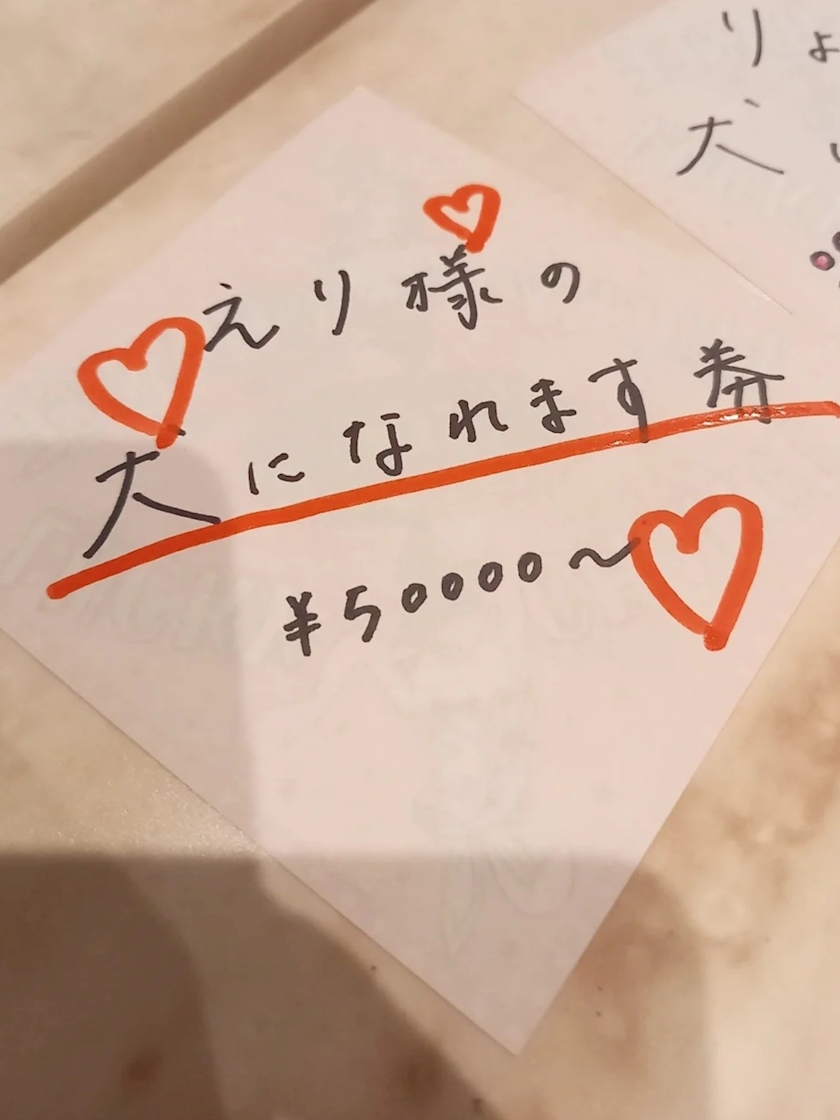 えり様の
犬になれます券
¥50000~
りょ
犬